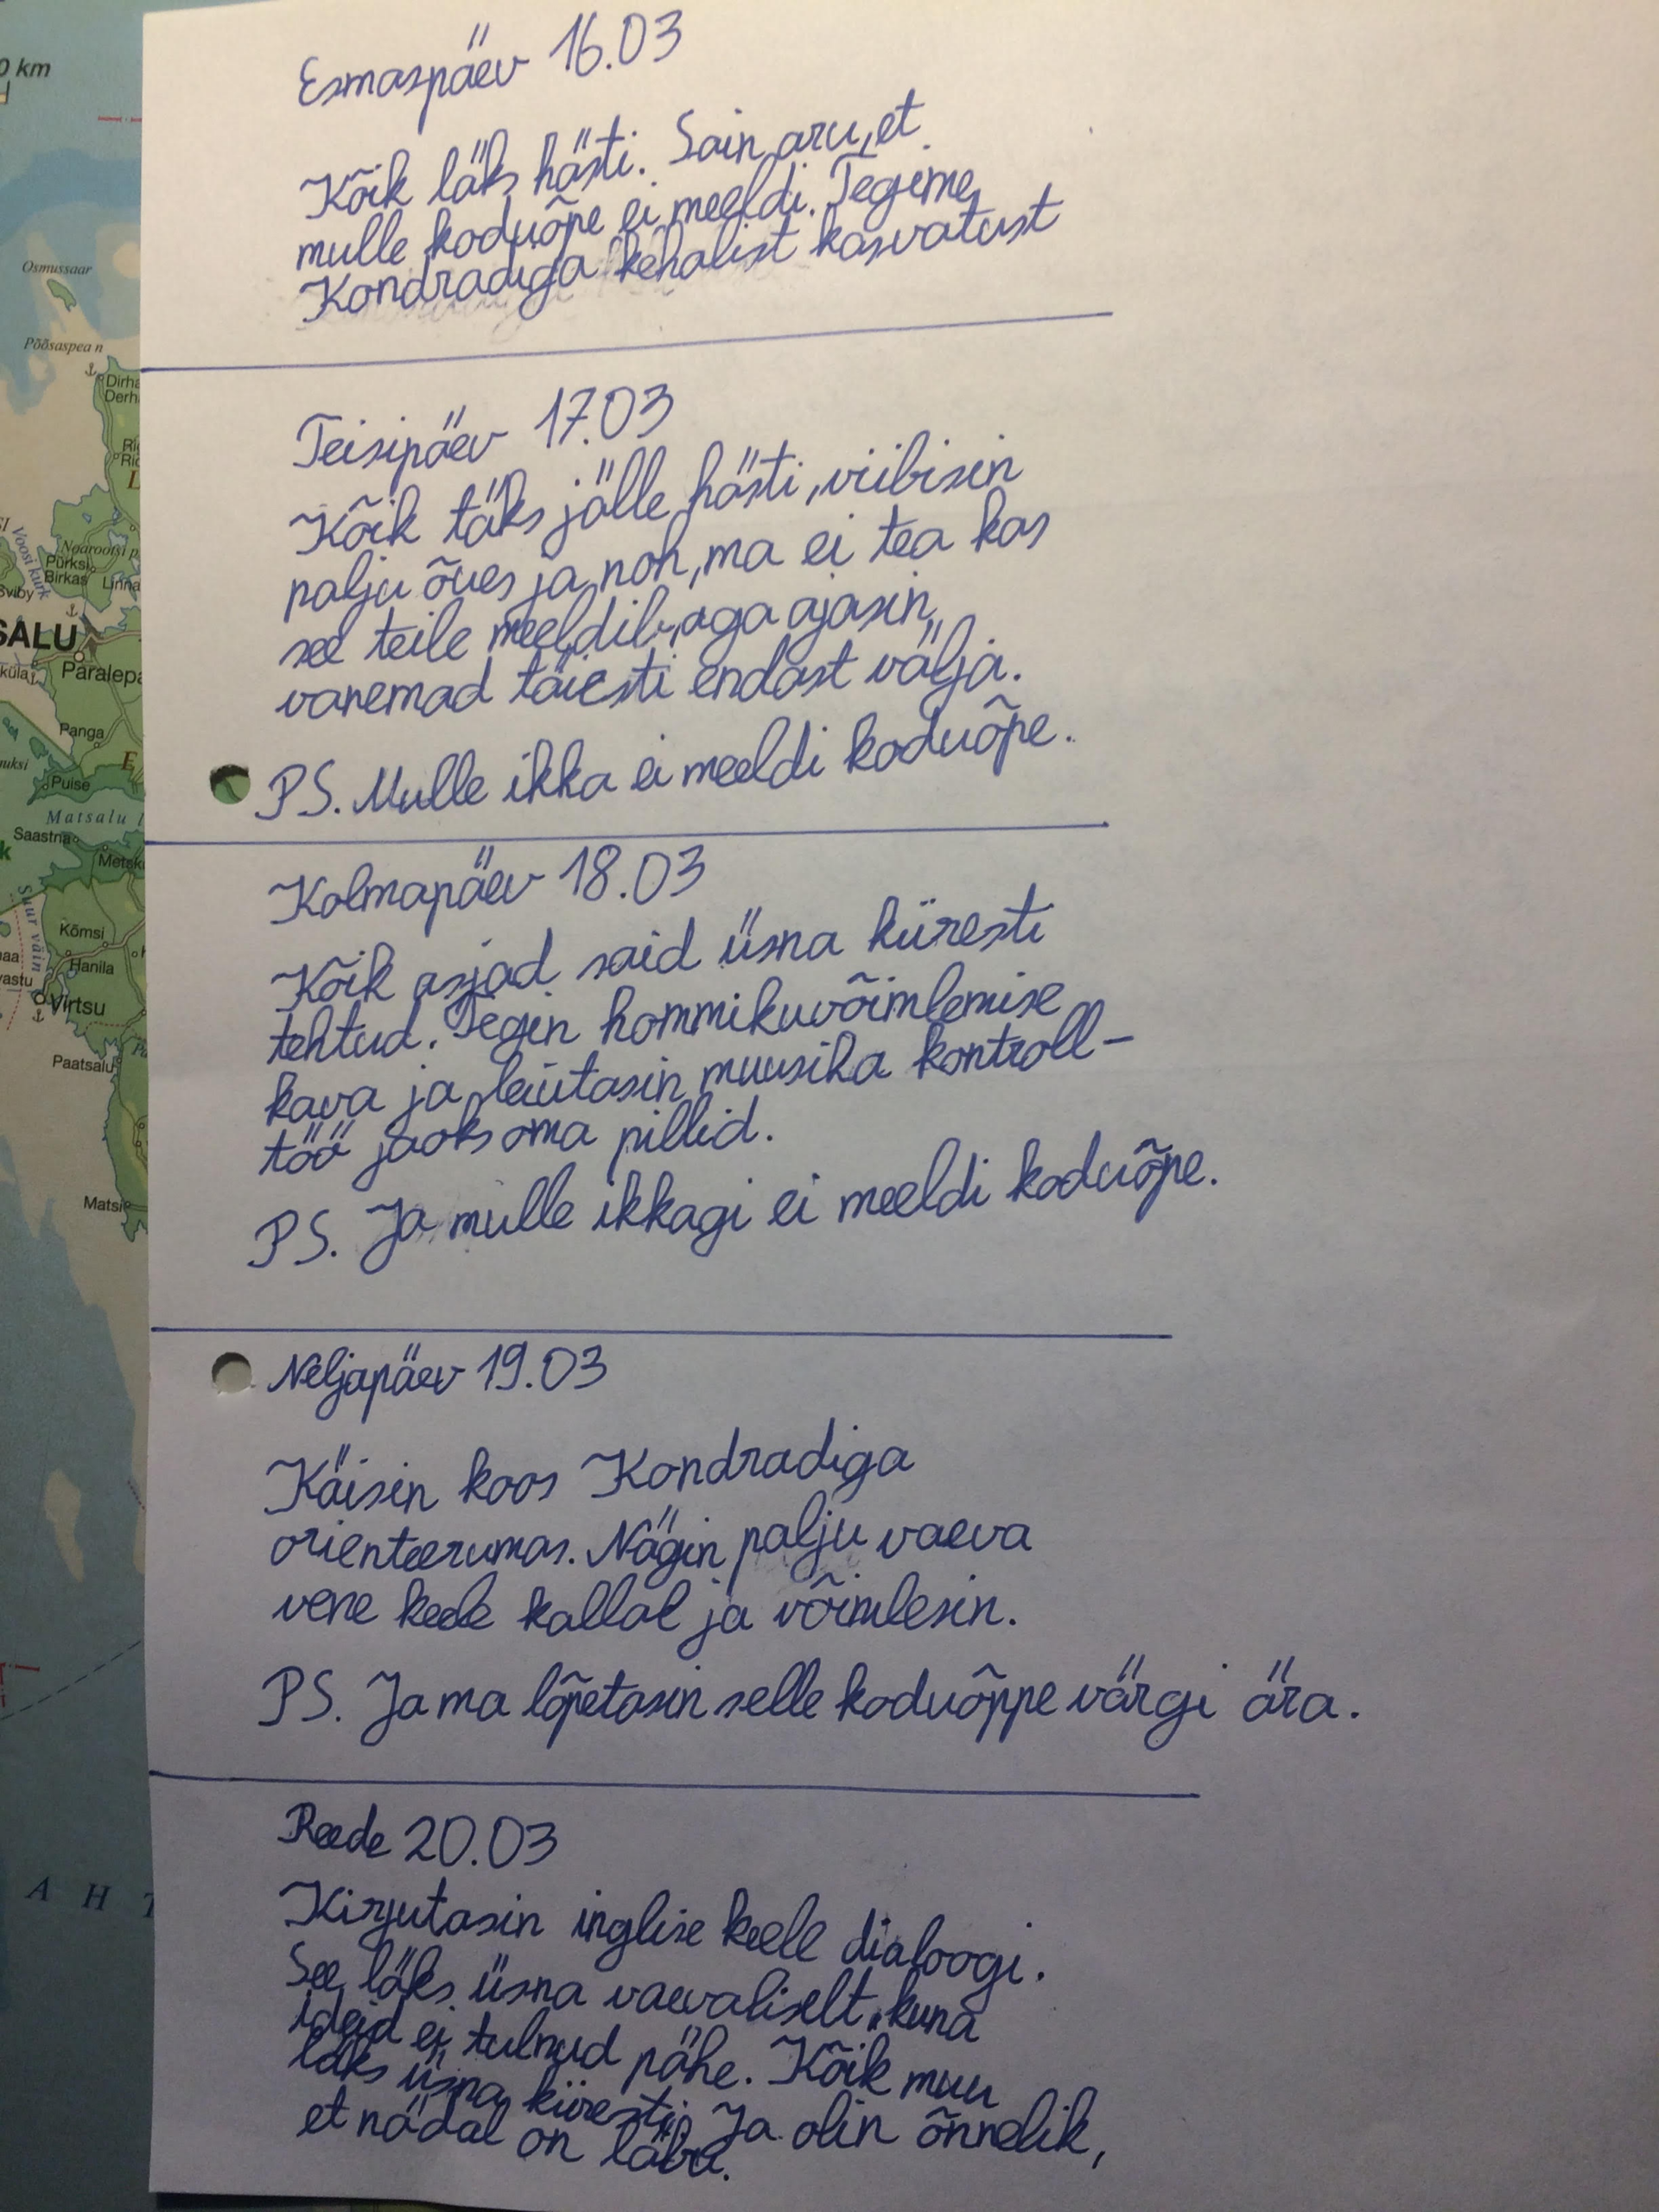 Esmaspäev 16.03
Kõik läks hästi. Sain aru, et
mulle koduõpe ei meeldi. Tegime
Kondradiga kehalist kasvatust
Teisipäev 17.03
Kõik täks jälle hästi, viibisin
palju õues ja noh, ma ei tea kas
see teile meeldib, aga ajasin
vanemad täiesti endast välja.
PS. Mulle ikka ei meeldi koduõpe.
Kolmapäev 18.03
Kõik asjad said üsna küresti
tehtud. Tegin hommikuvõimlemise
kava ja leiutasin muusika kontroll-
töö jaoks oma pillid.
PS. Ja mulle ikkagi ei meeldi koduõpe.
Neljapäev 19.03
Käisin koos Kondradiga
orienteerumas. Nägin palju vaeva
vene keele kallal ja võimlesin.
PS. Ja ma lõpetasin selle koduõppe värgi ära.
Reede 20.03
Kirjutasin inglise keele dialoogi.
See läks üsna vaevaliselt, kuna
ideid ei tulnud pähe. Kõik muu
läks üsna küresti. Ja olin õnnelik,
et nädal on läbi.
0 km
Osmussaar
Põõsaspea n
Dirha
Derh
Voosi kurk
Noarootsi p
Pürksi
Birkas
Linna
Sviby
SALU
Paralepa
Panga
E
Puise
Matsalu l
Saastna
Metsk
Suur väin
Kõmsi
Hanila
Virtsu
Paatsalu
Matsi
A H T